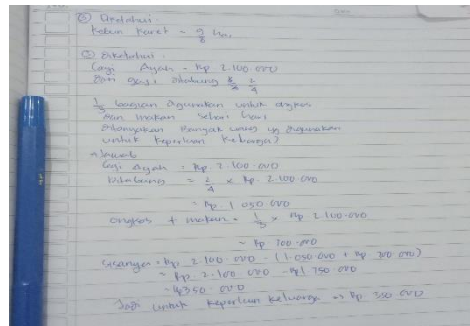 ② Diketahui :
Kebun Karet = 9/8 ha.
③ Diketahui :
Gaji Ayah = Rp 2.100.000
Dari gaji ditabung 2/4
1/3 bagian digunakan untuk ongkos
dan makan sehari hari
Ditanyakan banyak uang yg digunakan
untuk keperluan keluarga?
Jawab
Gaji Ayah = Rp. 2.100.000
Ditabung = 2/4 x Rp. 2.100.000
= Rp. 1 050.000
ongkos + makan = 1/3 x Rp 2.100.000
= Rp 700.000
Sisanya = Rp. 2.100.000 - (1.050.000 + Rp 700.000)
= Rp 2.100.000 - Rp 1 750.000
= Rp 350.000
Jadi untuk keperluan keluarga = Rp 350.000